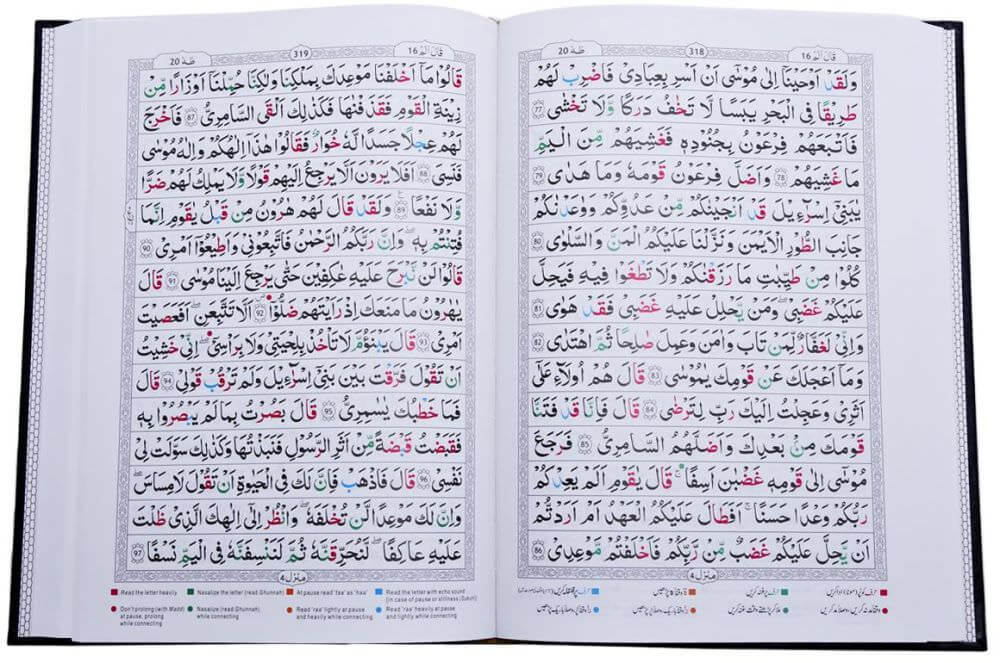 قَالَ اَلَمْ 16
318
طٰهٰ 20
وَلَقَدْ اَوْحَيْنَآ اِلٰى مُوْسٰٓى اَنْ اَسْرِ بِعِبَادِىْ فَاضْرِبْ لَهُمْ
طَرِيْقًا فِى الْبَحْرِ يَبَسًا لَّا تَخٰفُ دَرَكًا وَّلَا تَخْشٰى 77
فَاَتْبَعَهُمْ فِرْعَوْنُ بِجُنُوْدِهٖ فَغَشِيَهُمْ مِّنَ الْيَمِّ
مَا غَشِيَهُمْ 78 وَاَضَلَّ فِرْعَوْنُ قَوْمَهٗ وَمَا هَدٰى 79
يٰبَنِىْٓ اِسْرَآءِيْلَ قَدْ اَنْجَيْنٰكُمْ مِّنْ عَدُوِّكُمْ وَوٰعَدْنٰكُمْ
جَانِبَ الطُّوْرِ الْاَيْمَنَ وَنَزَّلْنَا عَلَيْكُمُ الْمَنَّ وَالسَّلْوٰى 80
كُلُوْا مِنْ طَيِّبٰتِ مَا رَزَقْنٰكُمْ وَلَا تَطْغَوْا فِيْهِ فَيَحِلَّ
عَلَيْكُمْ غَضَبِىْ وَمَنْ يَّحْلِلْ عَلَيْهِ غَضَبِىْ فَقَدْ هَوٰى 81
وَاِنِّىْ لَغَفَّارٌ لِّمَنْ تَابَ وَاٰمَنَ وَعَمِلَ صَالِحًا ثُمَّ اهْتَدٰى 82
وَمَآ اَعْجَلَكَ عَنْ قَوْمِكَ يٰمُوْسٰى 83 قَالَ هُمْ اُولَآءِ عَلٰٓى
اَثَرِىْ وَعَجِلْتُ اِلَيْكَ رَبِّ لِتَرْضٰى 84 قَالَ فَاِنَّا قَدْ فَتَنَّا
قَوْمَكَ مِنْۢ بَعْدِكَ وَاَضَلَّهُمُ السَّامِرِىُّ 85 فَرَجَعَ
مُوْسٰٓى اِلٰى قَوْمِهٖ غَضْبَانَ اَسِفًا ۚ قَالَ يٰقَوْمِ اَلَمْ يَعِدْكُمْ
رَبُّكُمْ وَعْدًا حَسَنًا ۚ اَفَطَالَ عَلَيْكُمُ الْعَهْدُ اَمْ اَرَدْتُّمْ
اَنْ يَّحِلَّ عَلَيْكُمْ غَضَبٌ مِّنْ رَّبِّكُمْ فَاَخْلَفْتُمْ مَّوْعِدِىْ 86
منزل 4
قَالَ اَلَمْ 16
319
طٰهٰ 20
قَالُوْا مَآ اَخْلَفْنَا مَوْعِدَكَ بِمَلْكِنَا وَلٰكِنَّا حُمِّلْنَآ اَوْزَارًا مِّنْ
زِيْنَةِ الْقَوْمِ فَقَذَفْنٰهَا فَكَذٰلِكَ اَلْقَى السَّامِرِىُّ 87 فَاَخْرَجَ
لَهُمْ عِجْلًا جَسَدًا لَّهٗ خُوَارٌ فَقَالُوْا هٰذَآ اِلٰهُكُمْ وَاِلٰهُ مُوْسٰى
فَنَسِىَ 88 اَفَلَا يَرَوْنَ اَلَّا يَرْجِعُ اِلَيْهِمْ قَوْلًا وَّلَا يَمْلِكُ لَهُمْ ضَرًّا
وَّلَا نَفْعًا 89 وَلَقَدْ قَالَ لَهُمْ هٰرُوْنُ مِنْ قَبْلُ يٰقَوْمِ اِنَّمَا
فُتِنْتُمْ بِهٖ ۚ وَاِنَّ رَبَّكُمُ الرَّحْمٰنُ فَاتَّبِعُوْنِىْ وَاَطِيْعُوْٓا اَمْرِىْ 90
قَالُوْا لَنْ نَّبْرَحَ عَلَيْهِ عٰكِفِيْنَ حَتّٰى يَرْجِعَ اِلَيْنَا مُوْسٰى 91 قَالَ
يٰهٰرُوْنُ مَا مَنَعَكَ اِذْ رَاَيْتَهُمْ ضَلُّوْٓا 92 اَلَّا تَتَّبِعَنِ ؕ اَفَعَصَيْتَ
اَمْرِىْ 93 قَالَ يَبْنَؤُمَّ لَا تَاْخُذْ بِلِحْيَتِىْ وَلَا بِرَاْسِىْ ۚ اِنِّىْ خَشِيْتُ
اَنْ تَقُوْلَ فَرَّقْتَ بَيْنَ بَنِىْٓ اِسْرَآءِيْلَ وَلَمْ تَرْقُبْ قَوْلِىْ 94 قَالَ
فَمَا خَطْبُكَ يٰسَامِرِىُّ 95 قَالَ بَصُرْتُ بِمَا لَمْ يَبْصُرُوْا بِهٖ
فَقَبَضْتُ قَبْضَةً مِّنْ اَثَرِ الرَّسُوْلِ فَنَبَذْتُهَا وَكَذٰلِكَ سَوَّلَتْ لِىْ
نَفْسِىْ 96 قَالَ فَاذْهَبْ فَاِنَّ لَكَ فِى الْحَيٰوةِ اَنْ تَقُوْلَ لَا مِسَاسَ
وَاِنَّ لَكَ مَوْعِدًا لَّنْ تُخْلَفَهٗ ۚ وَانْظُرْ اِلٰٓى اِلٰهِكَ الَّذِىْ ظَلْتَ
عَلَيْهِ عَاكِفًا ؕ لَنُحَرِّقَنَّهٗ ثُمَّ لَنَنْسِفَنَّهٗ فِى الْيَمِّ نَسْفًا 97
منزل 4
Read the letter heavily
Nasalize the letter (read Ghunnah)
At pause read 'taa' as 'haa'
Read the letter with echo sound
(in case of pause or stillness (Sukun)
Don't prolong (with Madd) at
pause, prolong
while connecting
Nasalize (read Ghunnah)
while connecting
Read 'raa' lightly at pause
and heavily while connecting
Read 'raa' heavily at pause
and lightly while connecting